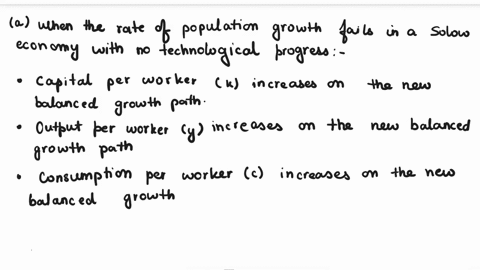 (a) When the rate of population growth falls in a Solow
economy with no technological progress:-
• Capital per worker (k) increases on the new
balanced growth path.
• Output per worker (y) increases on the new balanced
growth path
• Consumption per worker (c) increases on the new
balanced growth